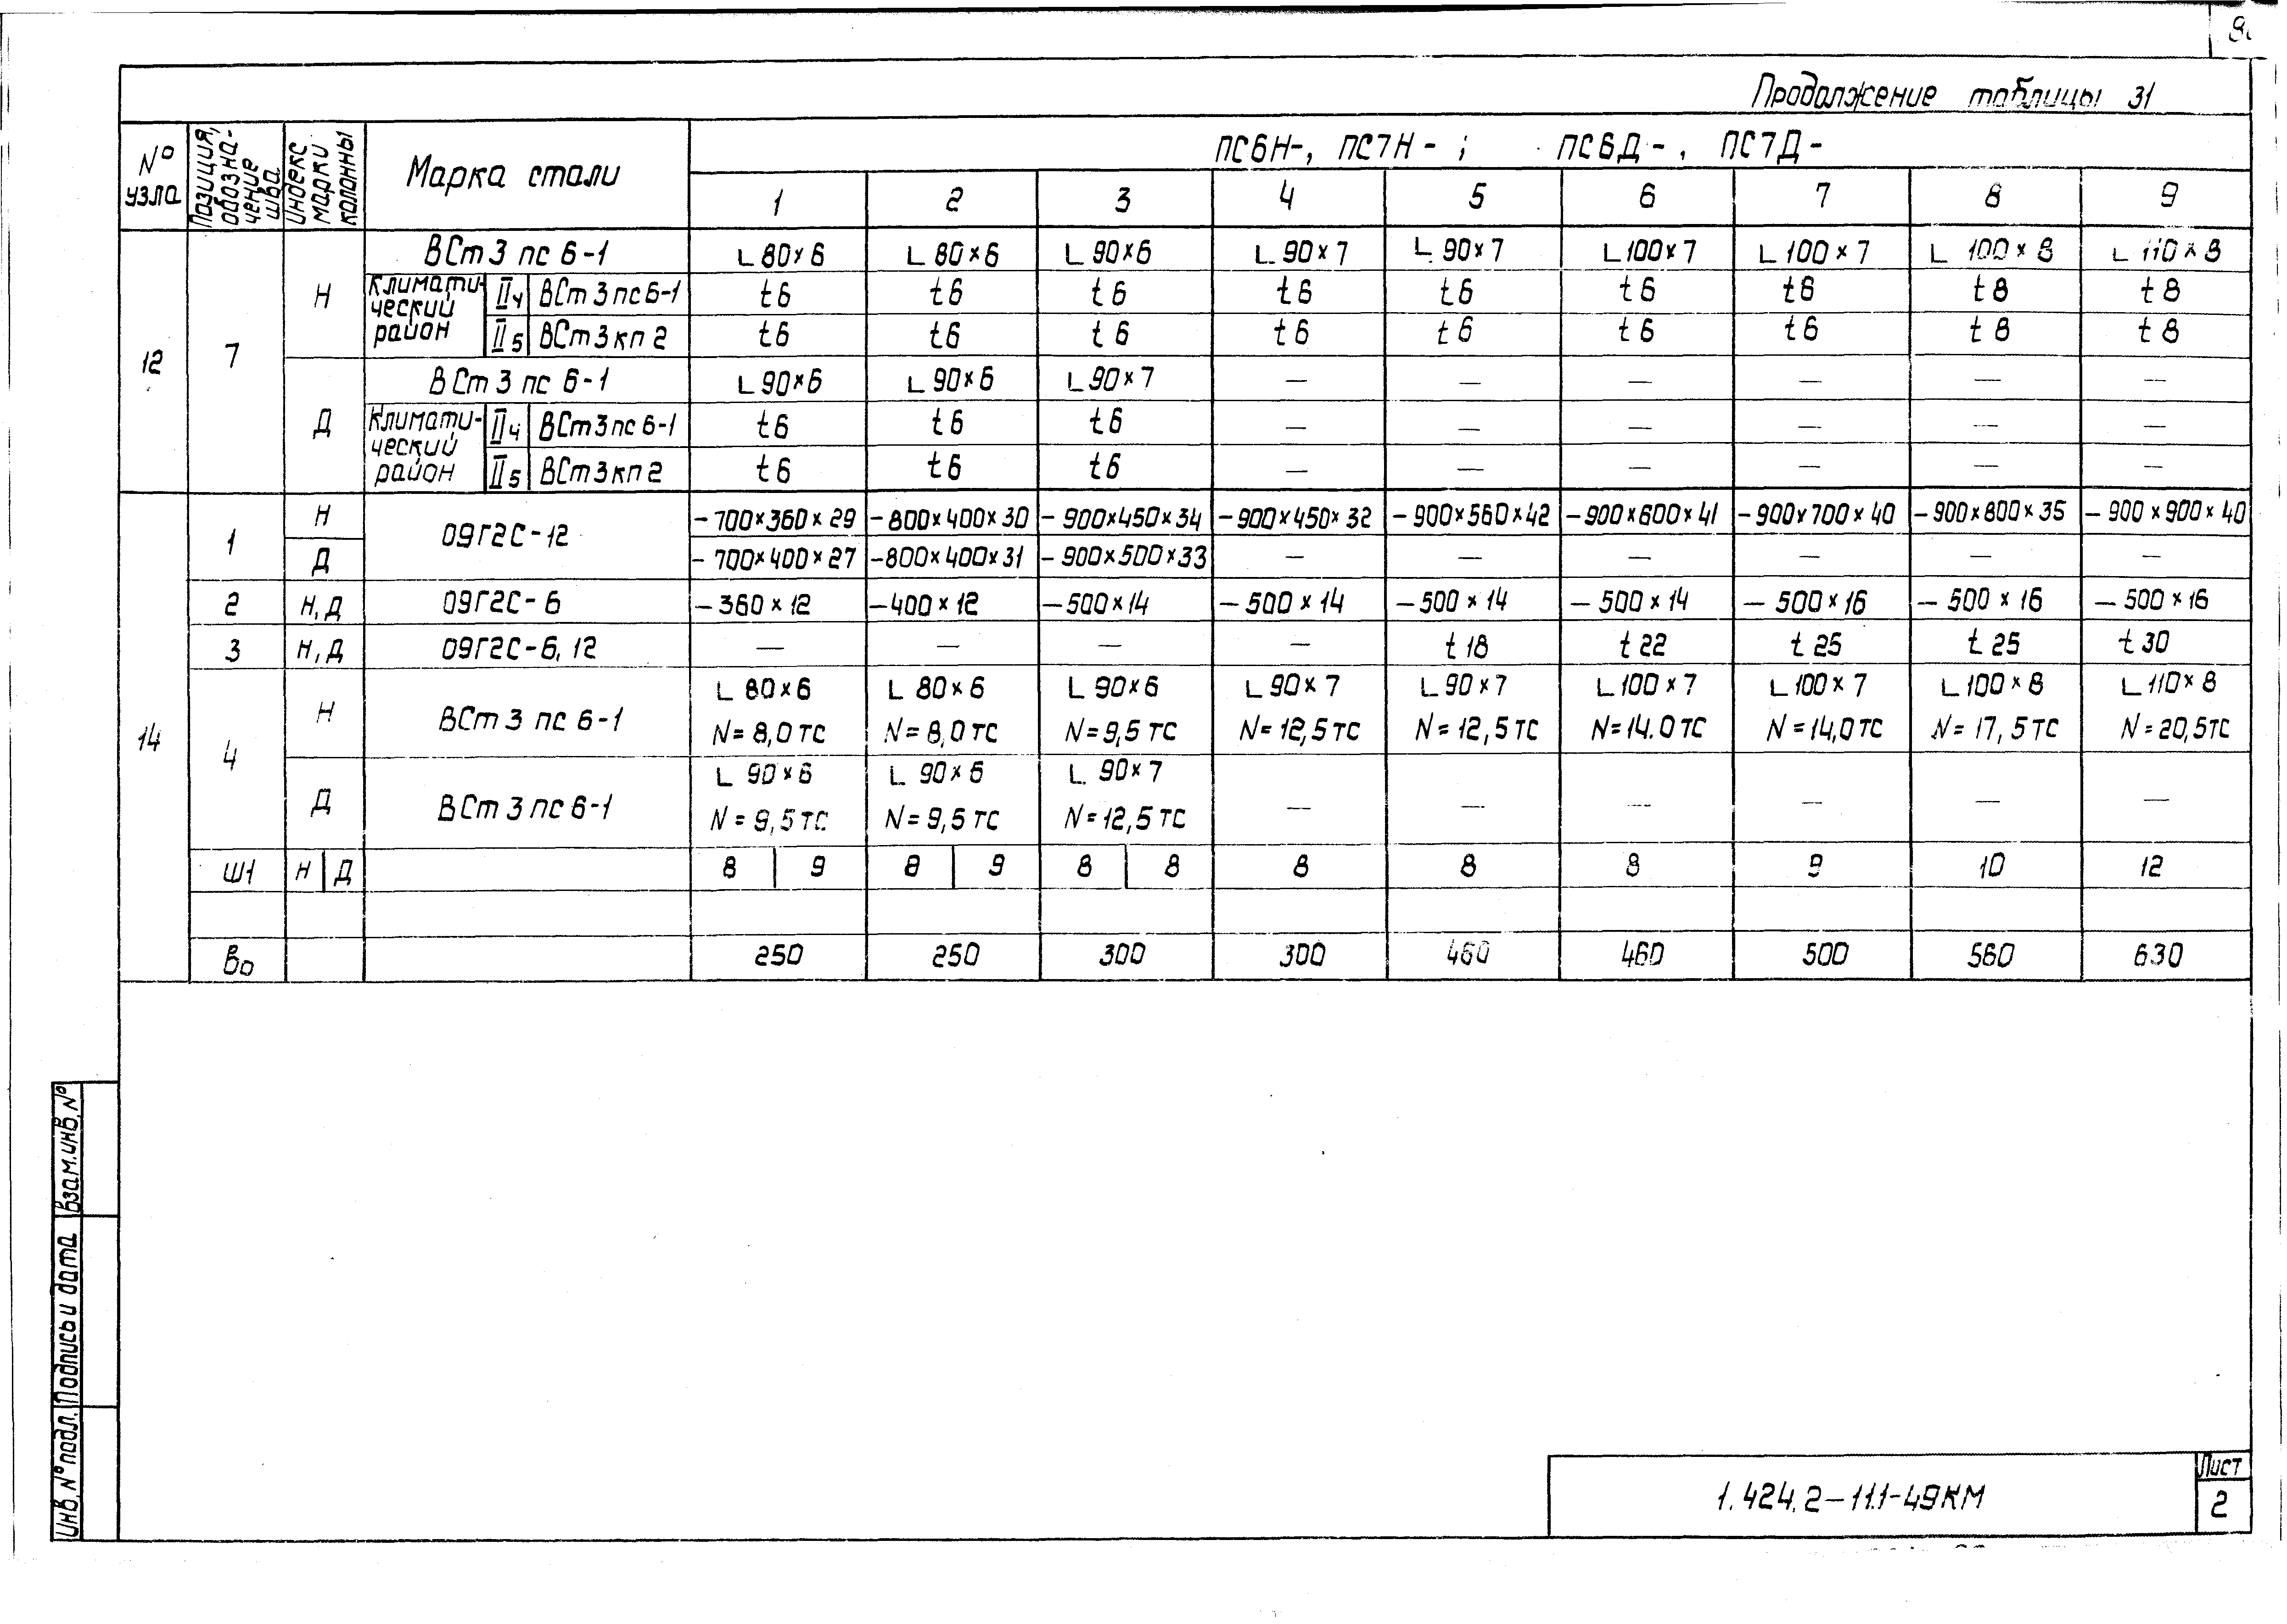 Продолжение таблицы 31
№ узла | Позиция, обозна-чение шва | Индекс марки колонны | Марка стали | ПС6Н-, ПС7Н- ; ПС6Д- , ПС7Д-
1 | 2 | 3 | 4 | 5 | 6 | 7 | 8 | 9
12 | 7 | Н | ВСт3пс6-1 | L80×6 | L80×6 | L90×6 | L90×7 | L90×7 | L100×7 | L100×7 | L100×8 | L110×8
Климати-ческий район | II4 | ВСт3пс6-1 | t6 | t6 | t6 | t6 | t6 | t6 | t6 | t8 | t8
II5 | ВСт3кп2 | t6 | t6 | t6 | t6 | t6 | t6 | t6 | t8 | t8
Д | ВСт3пс6-1 | L90×6 | L90×6 | L90×7 | — | — | — | — | — | —
Климати-ческий район | II4 | ВСт3пс6-1 | t6 | t6 | t6 | — | — | — | — | — | —
II5 | ВСт3кп2 | t6 | t6 | t6 | — | — | — | — | — | —
14 | 1 | Н | 09Г2С-12 | -700×360×29 | -800×400×30 | -900×450×34 | -900×450×32 | -900×560×42 | -900×600×41 | -900×700×40 | -900×800×35 | -900×900×40
Д | -700×400×27 | -800×400×31 | -900×500×33 | — | — | — | — | — | —
2 | Н,Д | 09Г2С-6 | -360×12 | -400×12 | -500×14 | -500×14 | -500×14 | -500×14 | -500×16 | -500×16 | -500×16
3 | Н,Д | 09Г2С-6,12 | — | — | — | — | t18 | t22 | t25 | t25 | t30
4 | Н | ВСт3пс6-1 | L80×6 | L80×6 | L90×6 | L90×7 | L90×7 | L100×7 | L100×7 | L100×8 | L110×8
N=8,0ТС | N=8,0ТС | N=9,5ТС | N=12,5ТС | N=12,5ТС | N=14.0ТС | N=14,0ТС | N=17,5ТС | N=20,5ТС
Д | ВСт3пс6-1 | L90×6 | L90×6 | L90×7 | — | — | — | — | — | —
N=9,5ТС | N=9,5ТС | N=12,5ТС
Ш1 | Н | Д | 8 | 9 | 8 | 9 | 8 | 8 | 8 | 8 | 8 | 9 | 10 | 12
В0 | 250 | 250 | 300 | 300 | 460 | 460 | 500 | 560 | 630
Инв.№ подл. Подпись и дата Взам.инв.№
1.424.2-11.1-49КМ
Лист
2